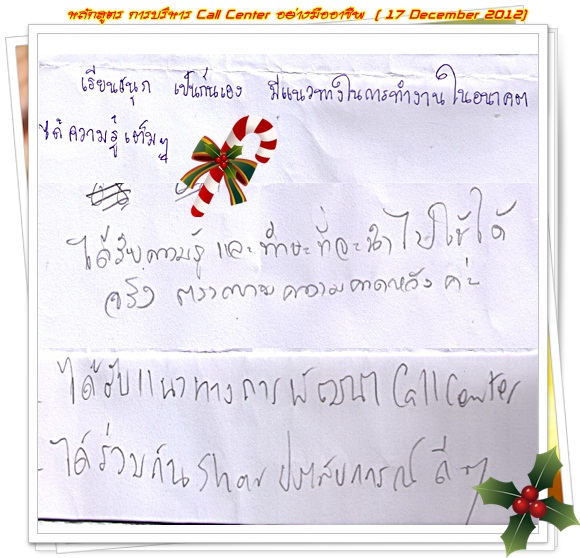 หลักสูตร การบริหาร Call Center อย่างมืออาชีพ ( 17 December 2012)
เรียนสนุก เป็นกันเอง มีแนวทางในการทำงานในอนาคต
ได้ความรู้เต็มๆ
ได้รับความรู้ และทักษะที่จะนำไปใช้ได้
จริง ตรงตามความคาดหวังค่ะ
- ได้รับแนวทางการพัฒนา Call Center
- ได้ร่วมกัน Share ประสบการณ์ ดีๆ